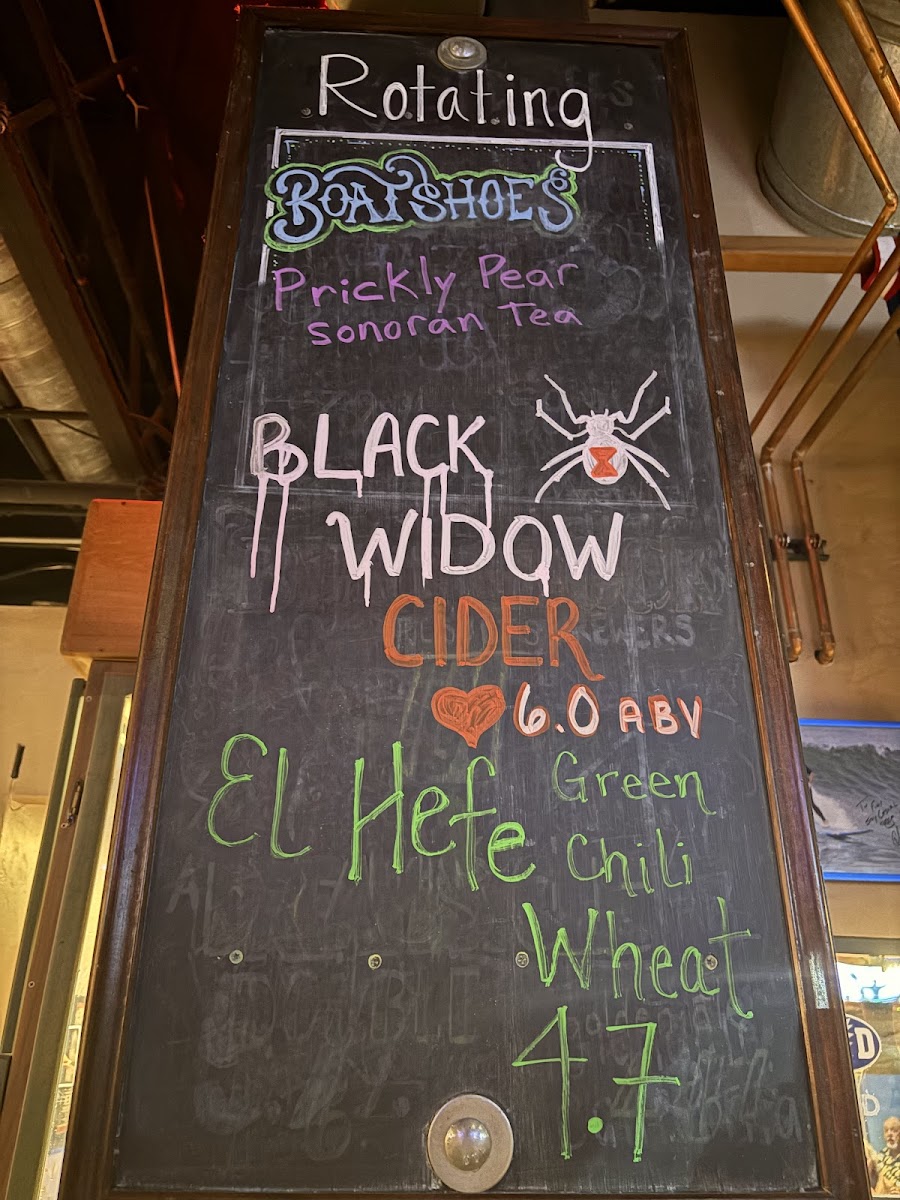 Rotating
BOATSHOES
Prickly Pear
Sonoran Tea
BLACK
WIDOW
CIDER
6.0 ABV
El Hefe
Green
Chili
Wheat
4.7